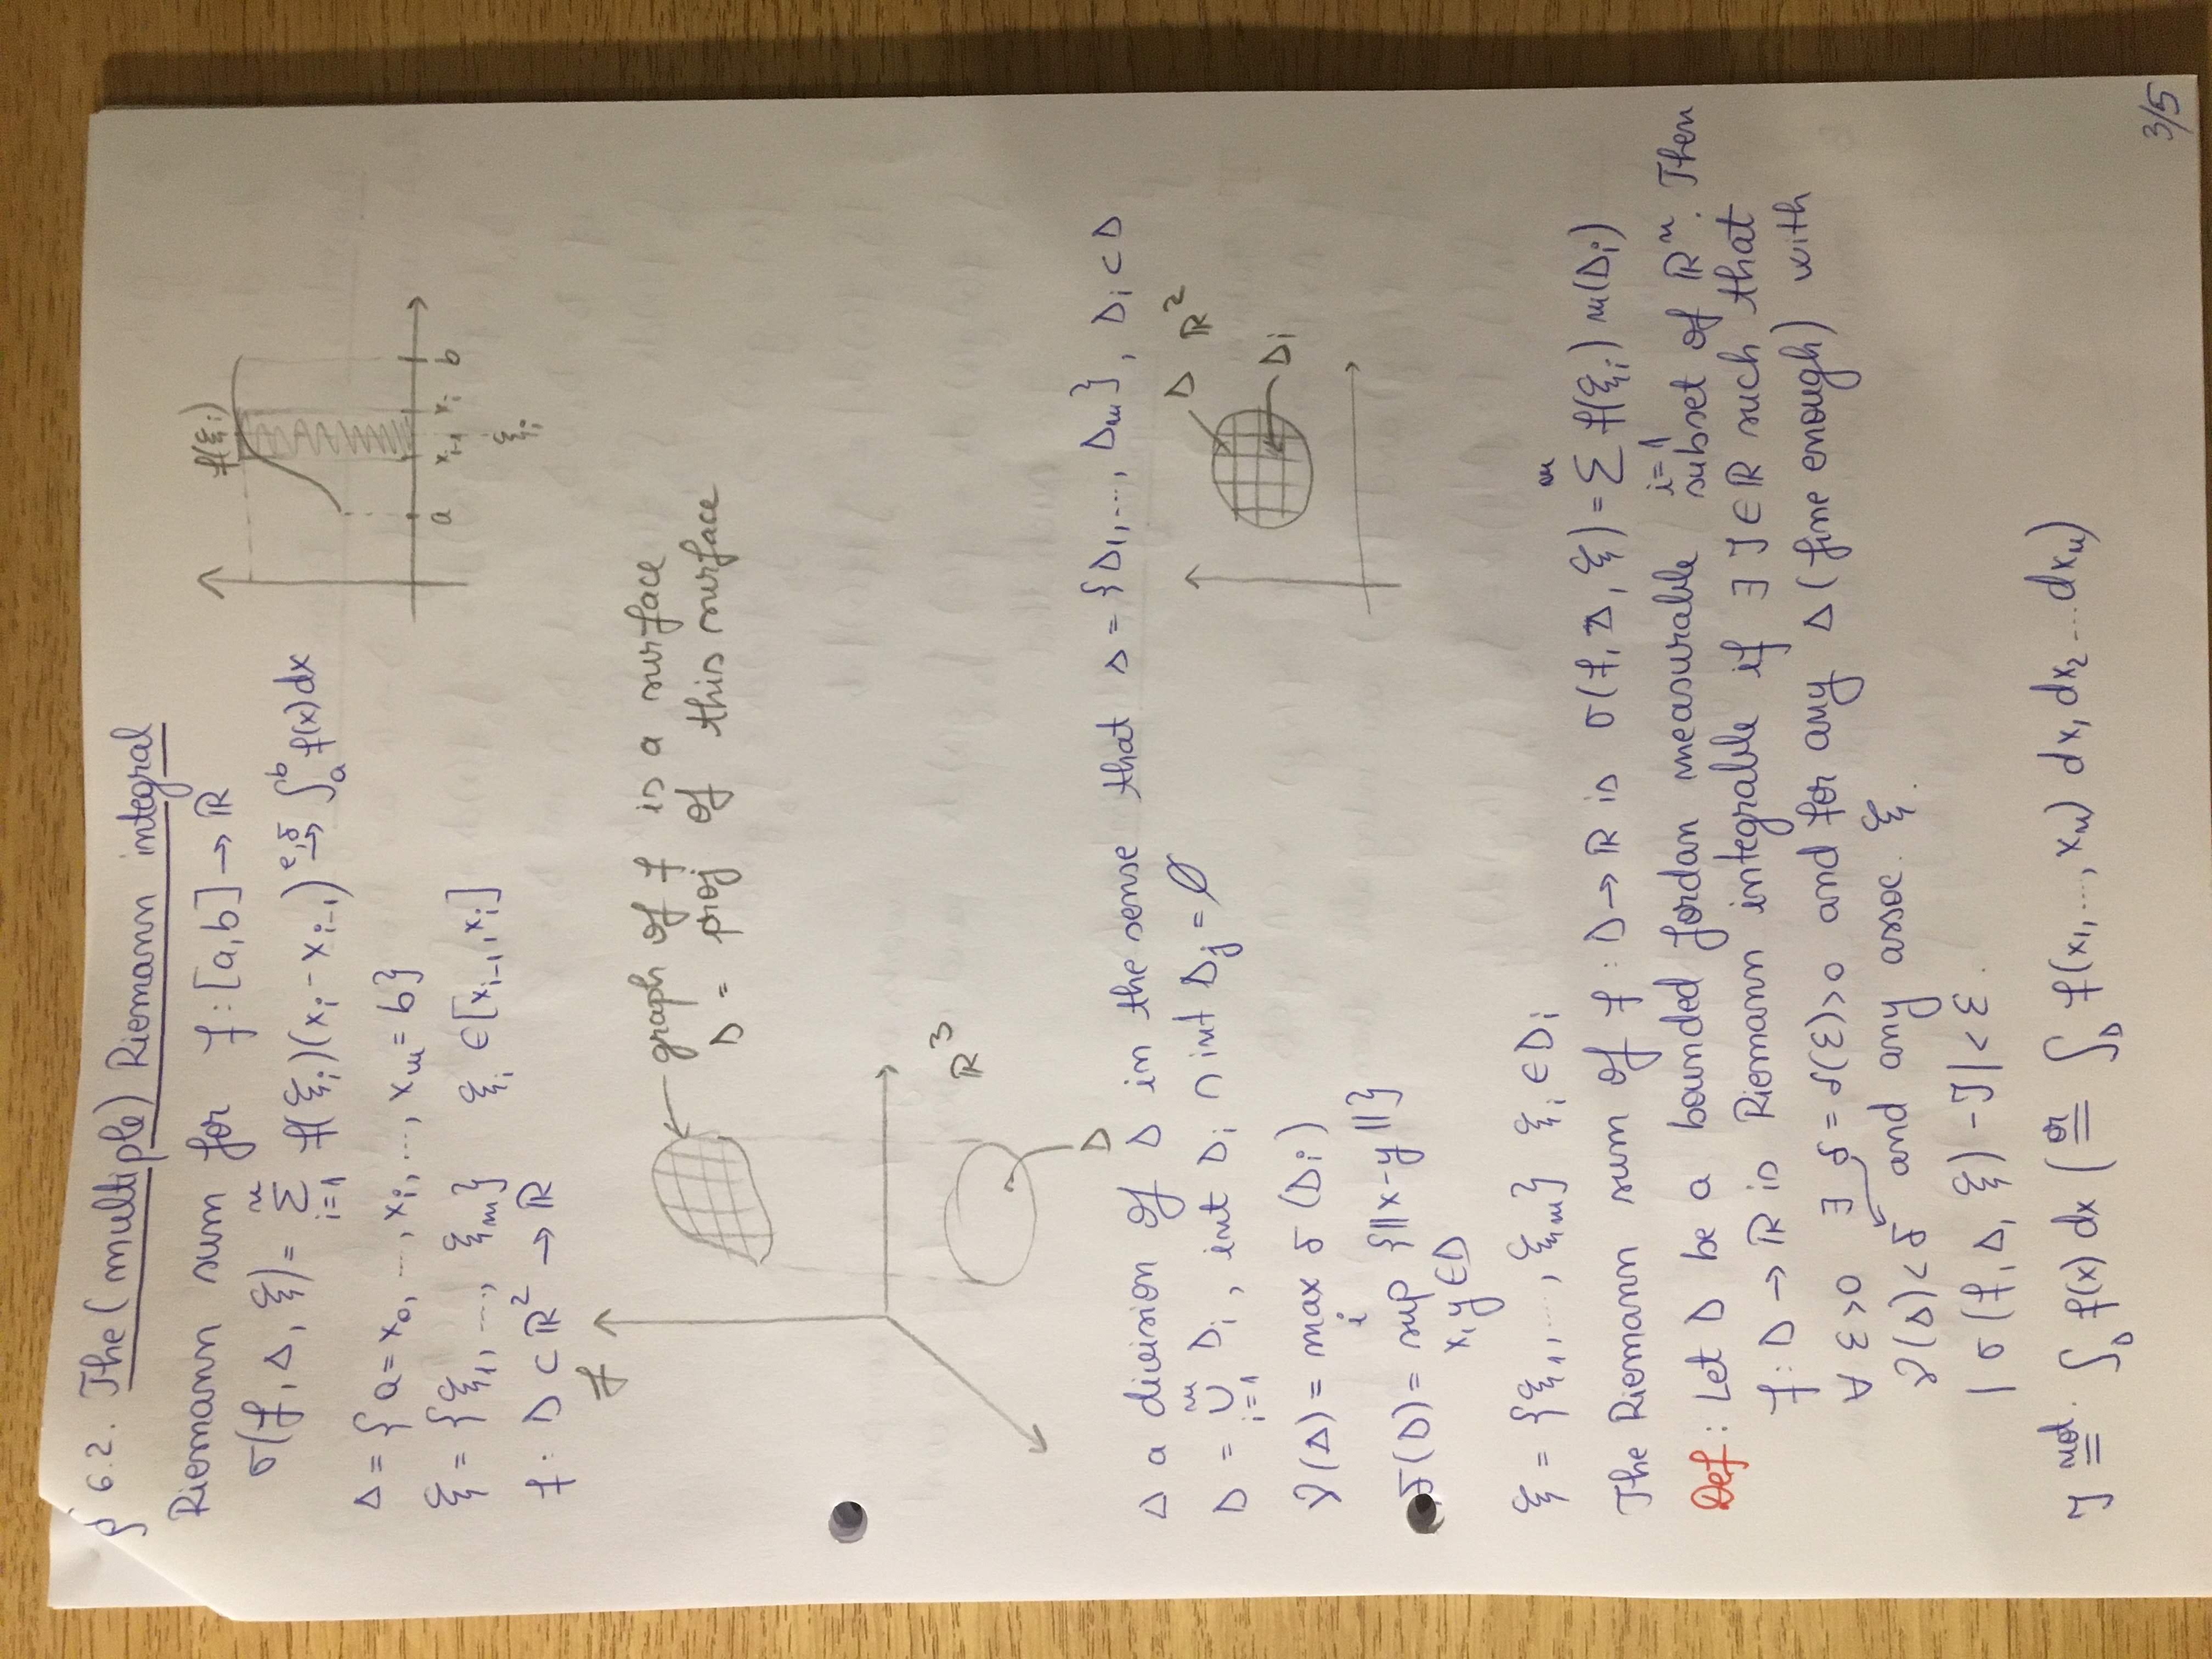 § 6.2. The (multiple) Riemann integral
Riemann sum for f: [a,b] → ℝ
σ(f, Δ, ξ) = Σ_{i=1}^{n} f(ξ_i)(x_i - x_{i-1}) →^{ε,δ} ∫_a^b f(x)dx
Δ = {a = x_0, ..., x_i, ..., x_m = b}
ξ = {ξ_1, ..., ξ_m} ξ_i ∈ [x_{i-1}, x_i]
f(ξ_i)
a x_{i-1} x_i b
ξ_i
f: D ⊂ ℝ² → ℝ
f
graph of f is a surface
D = proj of this surface
ℝ³
D
Δ a division of D in the sense that Δ = {D_1, ..., D_m}, D_i ⊂ D
D = ∪_{i=1}^{m} D_i, int D_i ∩ int D_j = ∅
D ℝ²
D_i
ν(Δ) = max_i δ(D_i)
δ(D) = sup_{x,y ∈ D} {||x-y||}
ξ = {ξ_1, ..., ξ_m} ξ_i ∈ D_i
The Riemann sum of f: D → ℝ is σ(f, Δ, ξ) = Σ_{i=1}^{m} f(ξ_i) m(D_i)
Def: Let D be a bounded Jordan measurable subset of ℝⁿ. Then
f: D → ℝ is Riemann integrable if ∃ I ∈ ℝ such that
∀ ε>0 ∃ δ = δ(ε)>0 and for any Δ (fine enough) with
ν(Δ) < δ and any assoc. ξ.
|σ(f, Δ, ξ) - I| < ε.
I =^{not.} ∫_D f(x) dx (=^{or} ∫_D f(x_1, ..., x_n) dx_1 dx_2 ... dx_n)
3/5